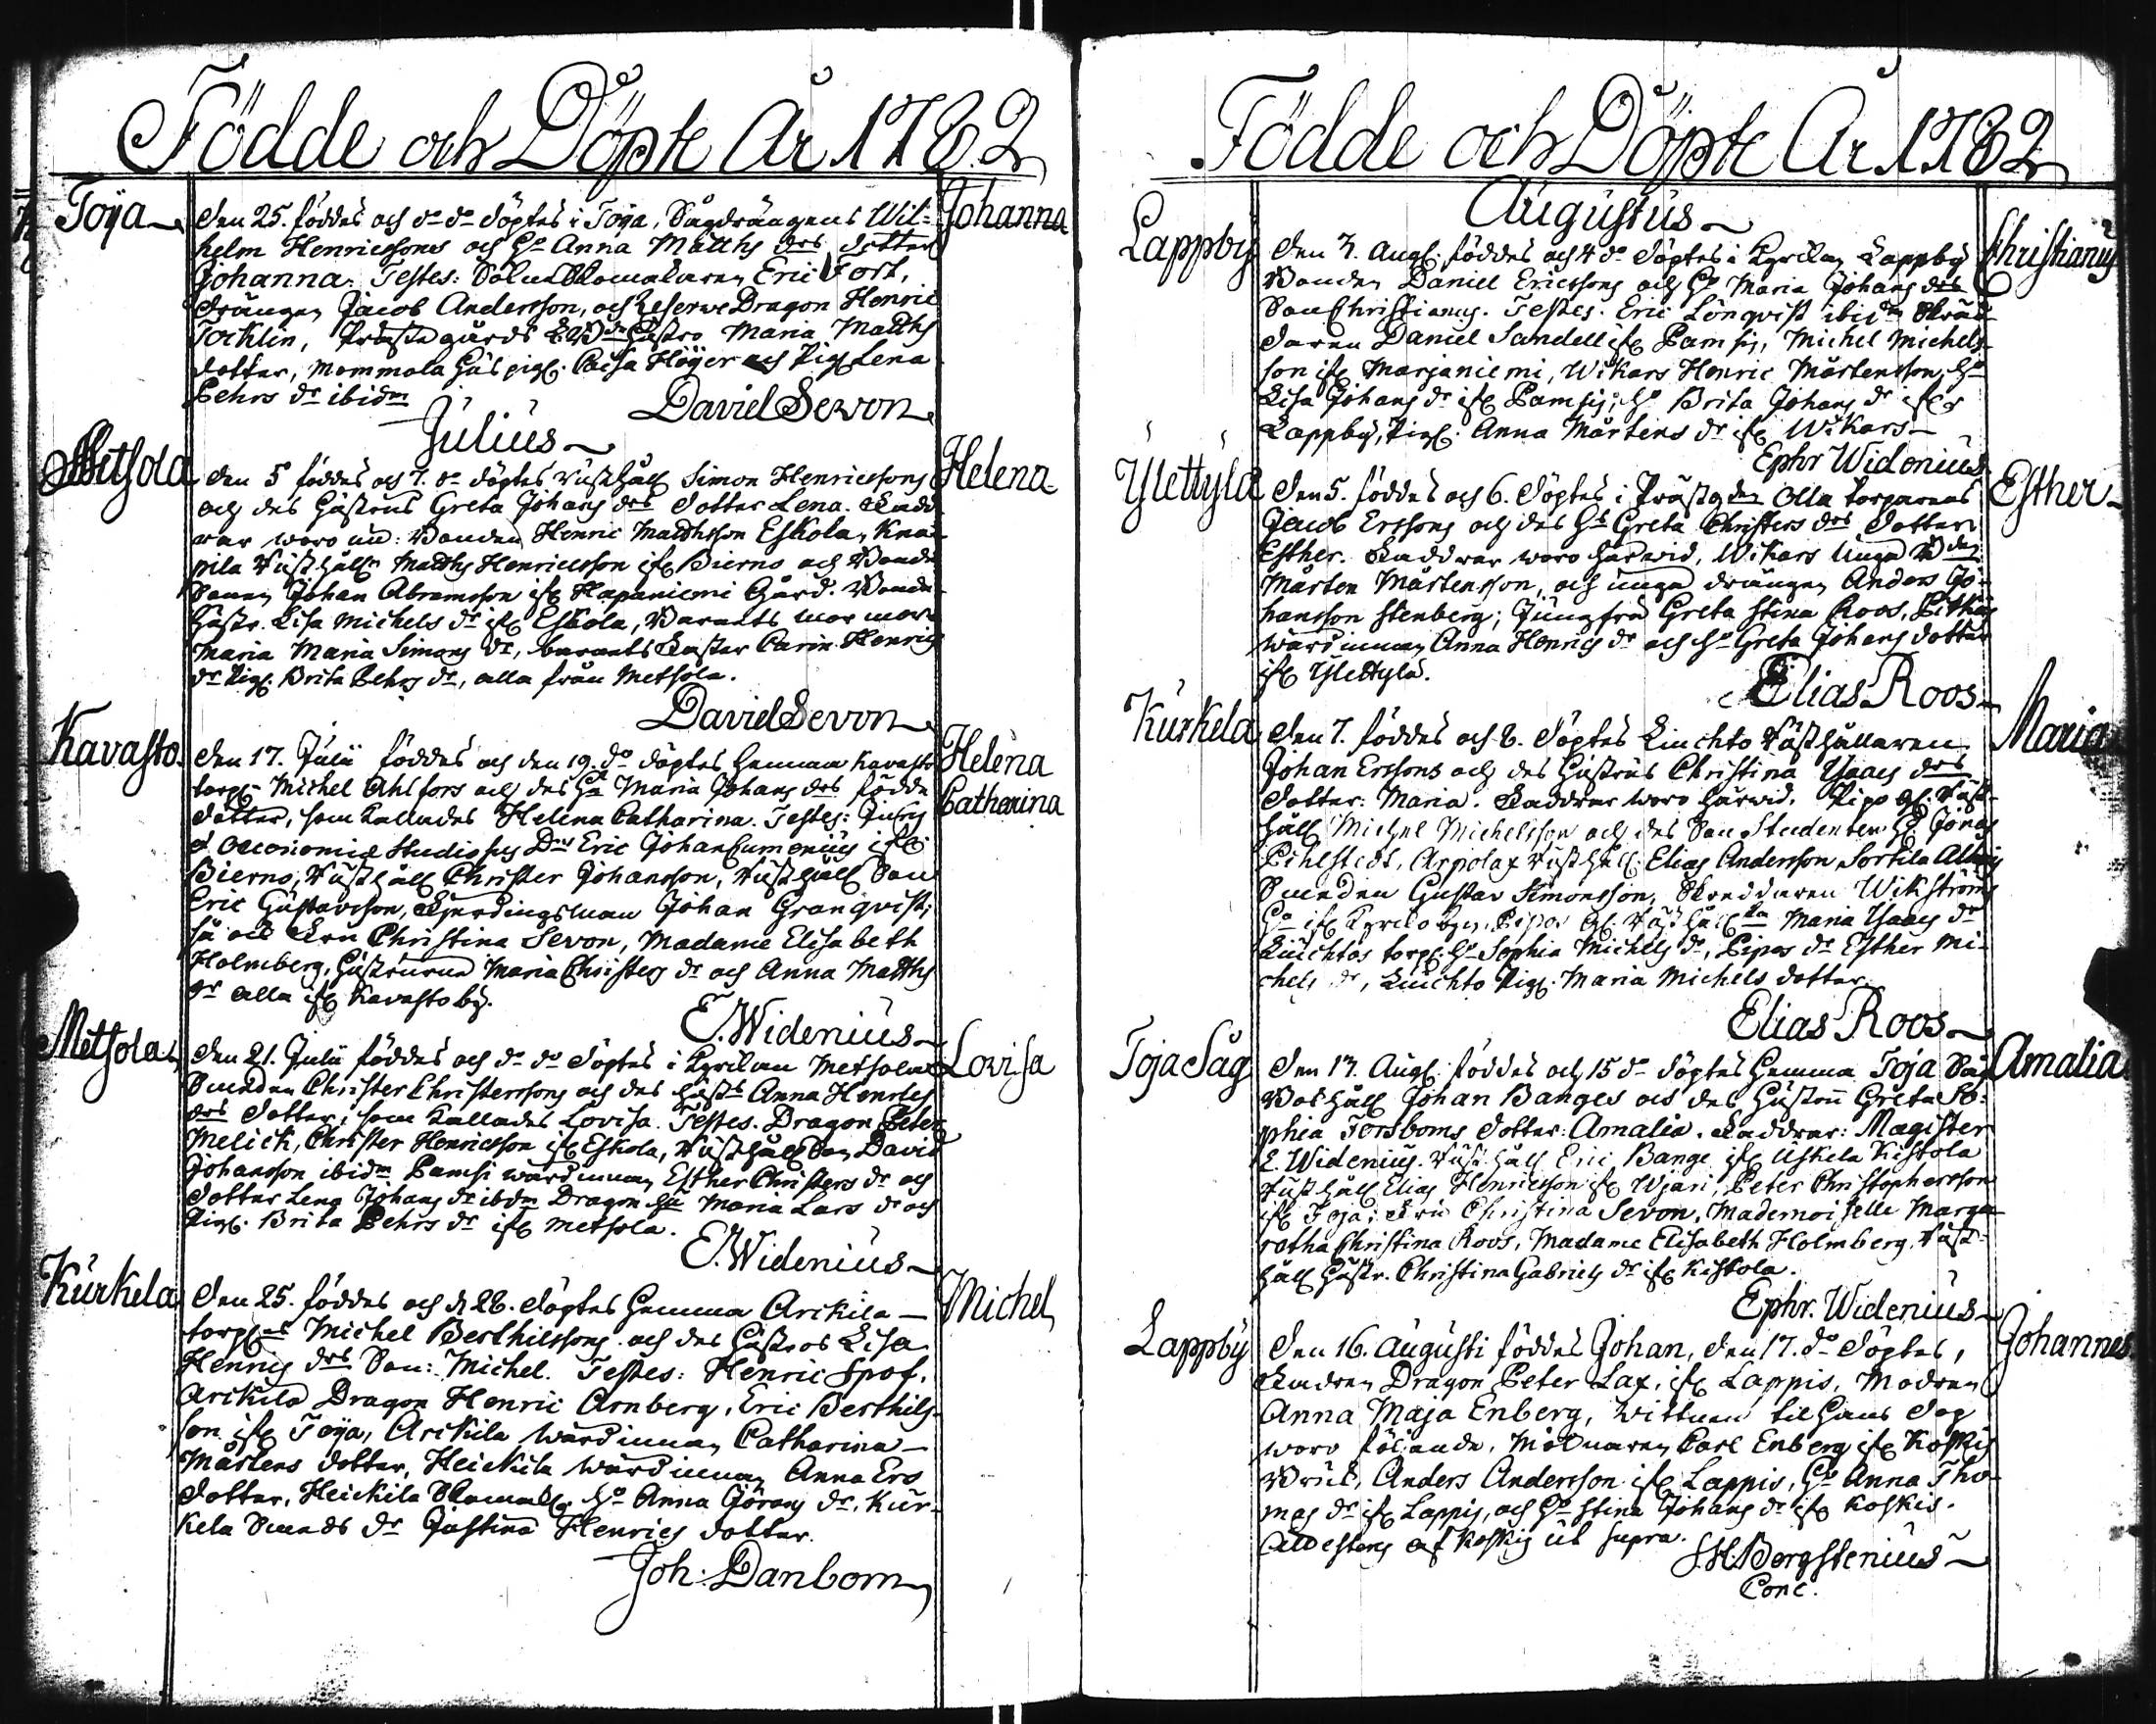 Födde och Döpte År 1782
Toija
Den 25. föddes och do do döptes i Toija, Sågdrängens Wil-
helm Henricssons och Ho Anna Matths drs dotter
Johanna. Testes: Eric Fort,
drängen Jacob Andersson, och Reserve Dragon Henric
Tocklin, Hustro Maria Matths
dotter, Mommola Caisa Höijer och Pig. Lena
Pehrs dr ibidm
Johanna
David Sevon
Julius
Metsola
den 5 föddes och 7. do döptes Rusthåll. Simon Henricssons
och des Hustrus Greta Johans drs dotter Lena. Fadd-
rar woro und: Bonden Henric Matthsson Eskola, Knaa-
pila Rusthåll. Matths Henricsson ifr. Bierno och Bonde
Sonen Johan Abramsson ifr. Hapaniemi Gård. Bonde
Hustr. Lisa Michels dr ifr. Eskola, Barnets mor mor
Maria Maria Simons dr, barnets Faster Carin Henrics
dr Pig. Brita Pehrs dr, alla från Metsola.
Helena
David Sevon
Kavasto
Den 17. Julii föddes och den 19. do döptes hemma Kavasto
torp. Michel Ahlfors och des Ho Maria Johans drs födde
dotter, som kallades Helena Catharina. Testes: Juris
et Oeconomiæ Studiosus Dns Eric Johan Cumenius ifr.
Bierno, Rusthåll. Christer Johansson, Rusthåll. Son
Eric Gustavsson, Fjerdingsman Johan Granqvist;
så ock Fru Christina Sevon, Madame Elisabeth
Holmberg, Hustrurna Maria Christers dr och Anna Matths
dr alla ifr. Kavasto by.
Helena
Catharina
E. Widenius
Metsola
Den 21. Julii föddes och do do döptes i Kyrckan Metsola
Smeden Christer Christerssons och des Hustr. Anna Henrics
drs dotter, som kallades Lovisa. Testes. Dragon Peter
Melick, Christer Henricsson ifr. Eskola, Rusthåll. Son David
Johansson ibidm Pamsi wärdinnan Esther Christers dr och
dotter Lena Johans dr ibidm Dragon Hu Maria Lars dr och
Pig. Brita Pehrs dr ifr. Metsola.
Lovisa
E. Widenius
Kurkela
Den 25. föddes och d. 28. döptes hemma Arckila
torp. Michel Berthilssons och des Hustros Lisa
Henrics drs Son: Michel. Testes: Henric Spof,
Arckila Dragon Henric Arnberg, Eric Berthils-
son ifr. Toija, Arckila wärdinnan Catharina
Mårtens dotter, Heickila wärdinnan Anna Ers
dotter, Heickila Ho Anna Görans dr, Kur-
kela Smeds dr Justina Henrics dotter.
Michel
Joh: Danbom
Födde och Döpte År 1782
Augustus
Lappby
Den 3. Aug. föddes och 4 do döptes i Kyrckan Lappby
Bonden Daniel Ericssons och Ho Maria Johans drs
Son Christianus. Testes. Eric Lönqvist ibidm Skräd-
daren Daniel Sandell ifr. Pamsis, Michel Michels-
son ifr. Marjaniemi, Wikars Henric Mårtensson, Ho
Lisa Johans dr ifr. Pamsis; Ho Brita Johans dr ifr.
Lappby, Pig. Anna Mårtens dr ifr. Wikars
Christianus
Ephr Widenius
Ylettylä
Den 5. föddes och 6. döptes i Olla torparens
Jacob Erssons och des Hs Greta Christers drs dotter
Esther. Faddrar woro härwid, Wikars unga
Mårten Mårtensson, och unga drängen Anders Jo-
hansson Stenberg; Jungfru Greta Stina Roos, Pitkäs
wärdinnan Anna Henrics dr och Ho Greta Johans dotter
ifr. Ylettylä.
Esther
Elias Roos
Kurkela
Den 7. föddes och 8. döptes Liuchto Rusthållaren
Johan Erssons och des Hustrus Christina Isaacs drs
dotter: Maria. Faddrar woro härwid. Pipo gl. Rust-
håll. Michel Michelsson och des Son Studenten Hr. Jonas
Pihlstedt, Appolax Rusthåll. Elias Andersson Sortila
Smeden Gustav Simonsson, Skreddaren Wikströms
Ho ifr. Kyrcko byn, Pipos gl. Rusthåll. Maria Isaacs dr
Liuchtos torp. Ho Sophia Michels dr, Pipos dr Esther Mi-
chels dr, Liuchto Pig. Maria Michels dotter.
Maria
Elias Roos
Toja Såg
Den 13. Aug. föddes och 15 do döptes hemma Toja Såg
Johan Banges och des Hustru Greta So-
phia Forsboms dotter: Amalia. Faddrar: Magister
E. Widenius. Rusthåll. Eric Bange ifr. Uskela Kistola
Rusthåll. Elias Henricsson ifr. Wjari, Peter Christophersson
ifr. Toja; Fru Christina Sevon, Mademoiselle Marga-
retha Christina Roos, Madame Elisabeth Holmberg, Rust-
håll. Hustr. Christina Gabriels dr ifr. Kistola.
Amalia
Ephr. Widenius
Lappby
Den 16. Augusti föddes Johan, den 17. do döptes,
Fadren Dragon Peter Lax, ifr. Lappis, Modren
Anna Maja Enberg, Wittnen til hans dop
woro följande, Mölnaren Carl Enberg ifr. Koskis
Bruk, Anders Andersson ifr. Lappis, Ho Anna Tho-
mas dr ifr. Lappis, och Ho Stina Johans dr ifr. Koskis.
af Koskis ut supra.
Johannes
Bergstenius
Conc.